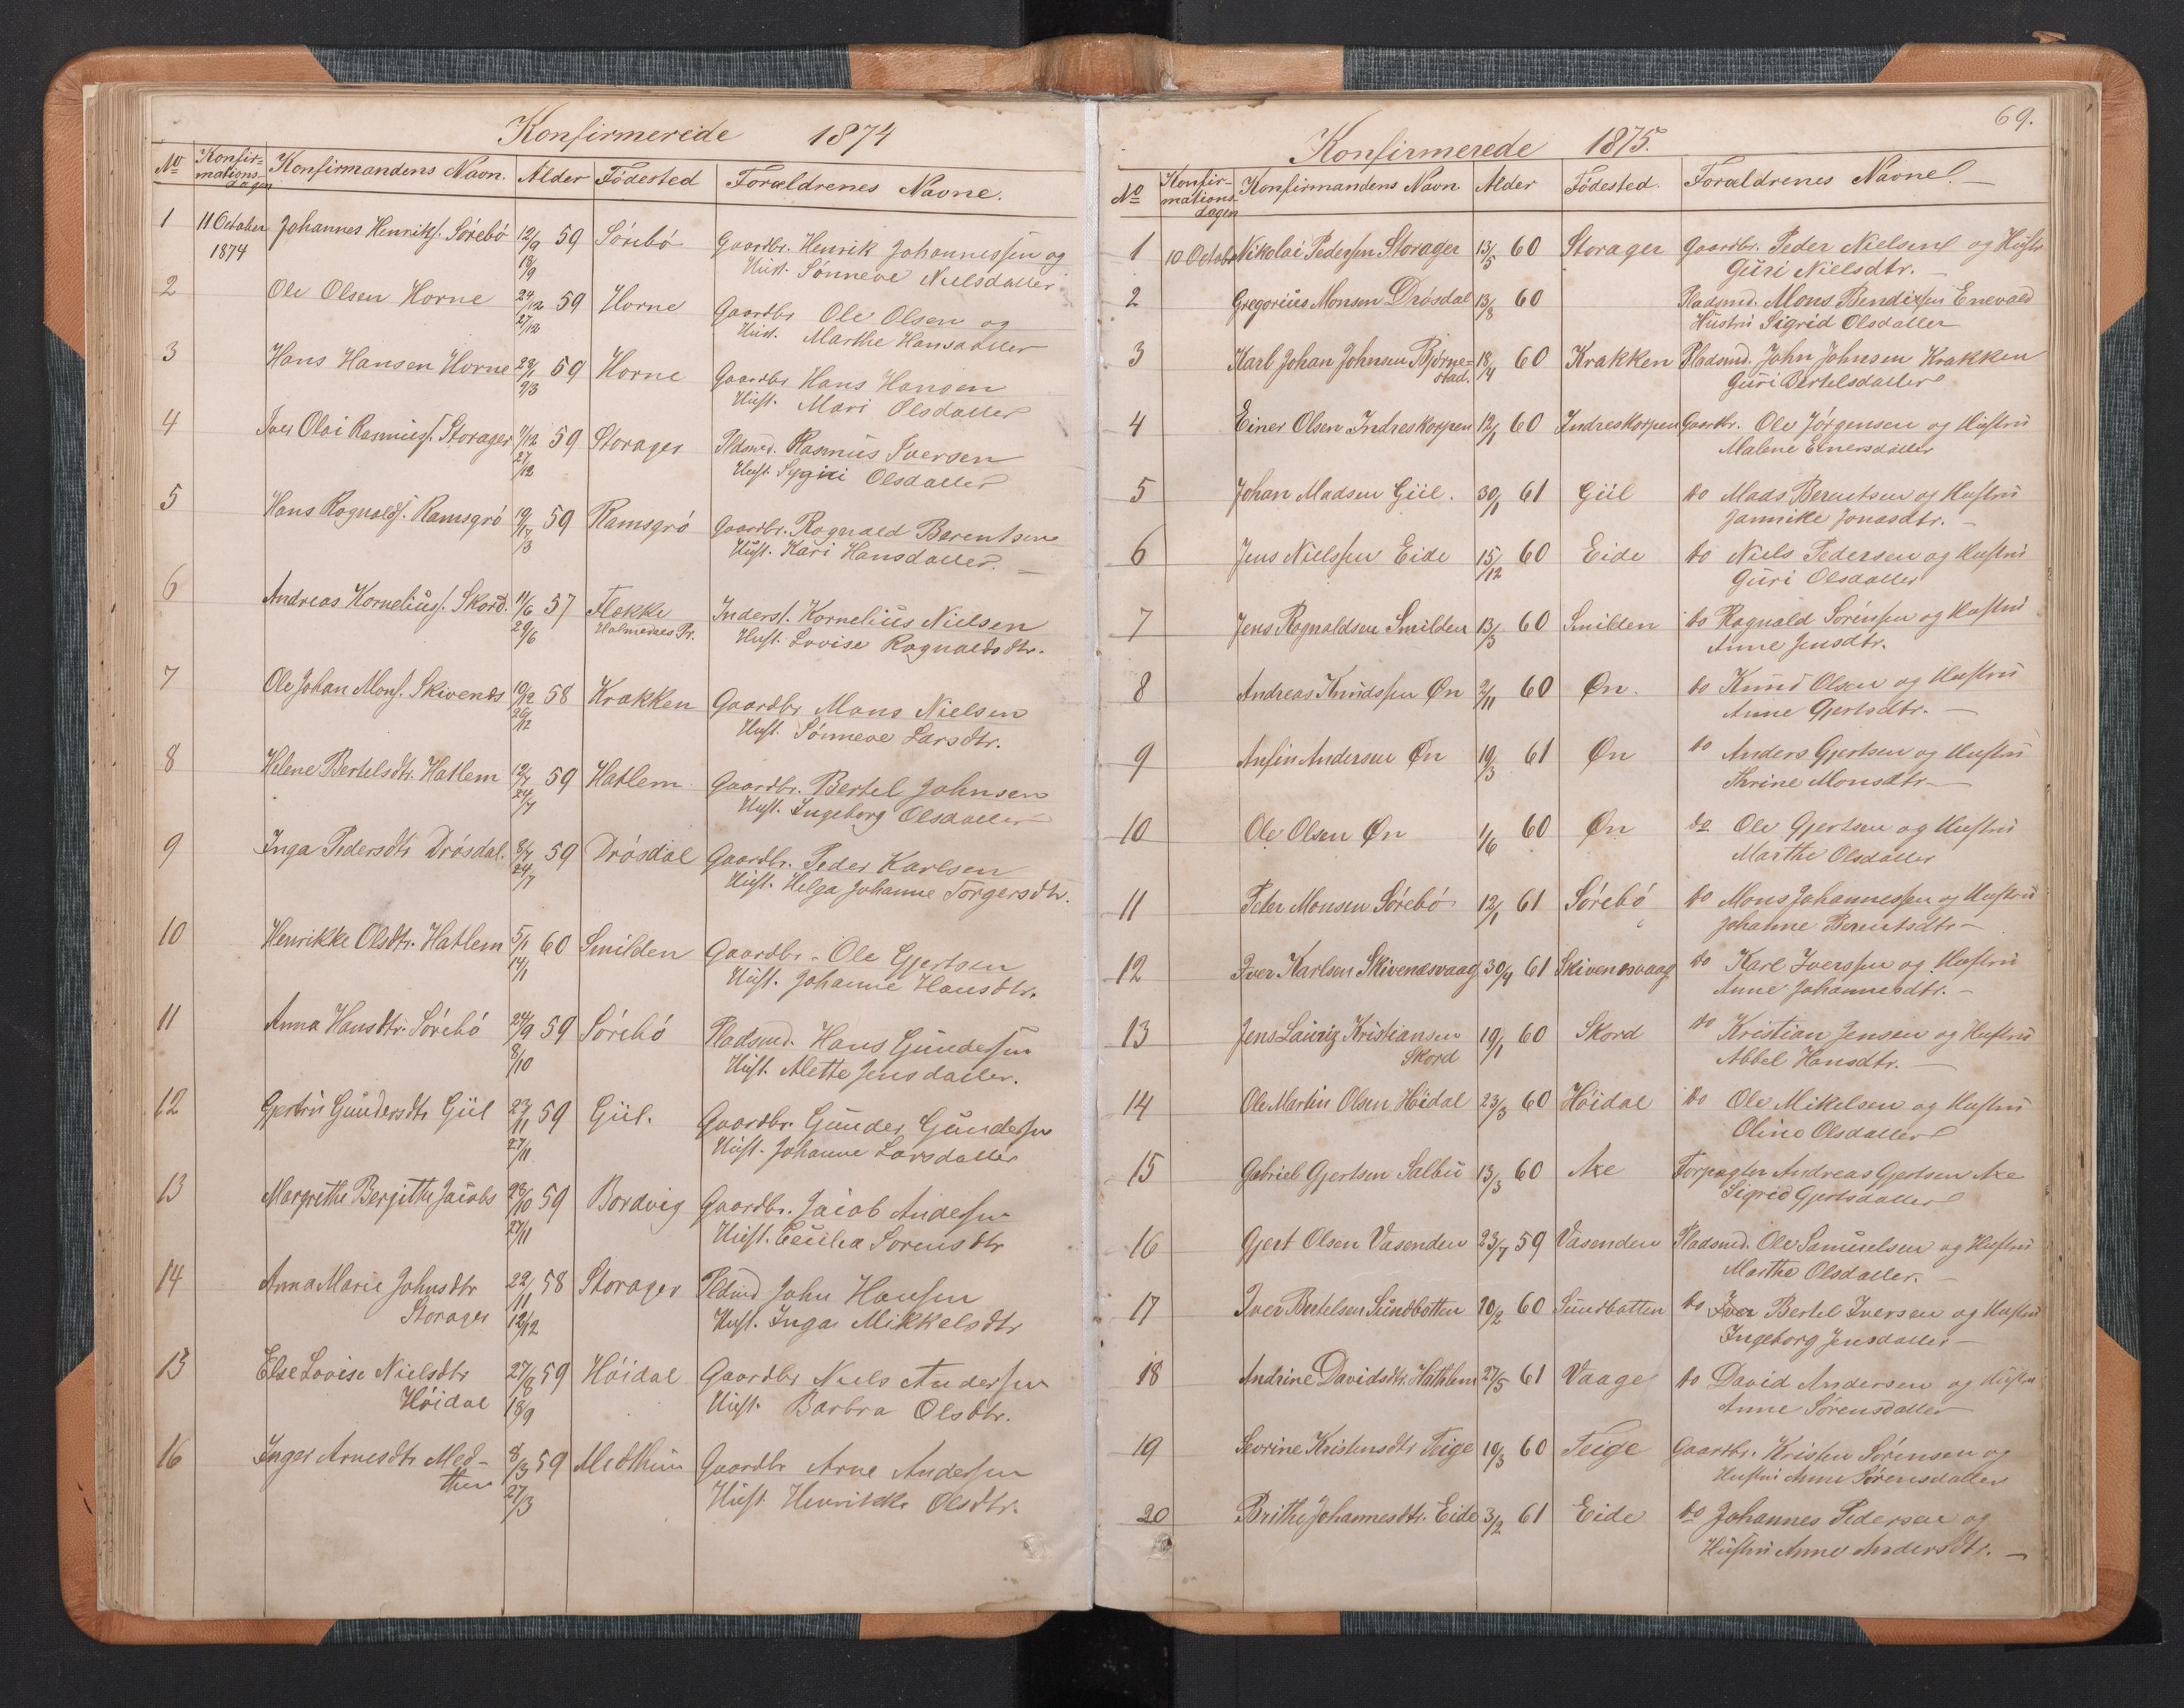 Konfirmerede 1874
No Konfirmationsdagen Konfirmandens Navn. Alder Födested Forældrenes Navne.
1 11 October 1874 Johannes Henriks. Sörebö 12/9 59 Sörebö Gaardbr. Henrik Johannessen og
18/9 Hust. Sönneve Nielsdatter
2 Ole Olsen Horne 24/12 59 Horne Gaardbr Ole Olsen og
27/12 Hust. Marthe Hansdatter
3 Hans Hansen Horne 23/1 59 Horne Gaardbr Hans Hansen
2/3 Hust. Mari Olsdatter
4 Iver Olai Rasmuss. Storager 7/12 59 Storager Pldsmd. Rasmus Iversen
27/12 Hust. Olsdatter
5 Hans Ragnalds. Ramsgrö 19/ 59 Ramsgrö Gaardbr. Ragnald Berentsen
/3 Hust. Kari Hansdatter.
6 Andreas Korneliuss. Skord. 11/6 57 Flekke Inderst. Kornelius Nielsen
29/6 Holmedals Pr. Hust. Lovise Ragnaldsdtr.
7 Ole Johan Mons. Skivenes 19/12 58 Krakken Gaardbr Mons Nielsen
26/12 Hust. Sönneve Larsdtr.
8 Helene Bertelsdtr. Hatlem 12/7 59 Hatlem Gaardbr. Bertel Johnsen
24/7 Hust. Ingeborg Olsdatter
9 Inga Pedersdtr Drösdal. 8/7 59 Drösdal Gaardbr. Peder Karlsen
24/7 Hust. Helga Johanne Torgersdtr.
10 Henrikke Olsdtr. Hatlem 5/1 60 Smilden Gaardbr. Ole Gjertsen
14/1 Hust. Johanne Hansdtr.
11 Anna Hansdtr. Sörebö 24/9 59 Sörebö Pladsmd. Hans Gundersen
8/10 Hust. Alette Jensdatter.
12 Gjertru Gundersdtr Güil 23/11 59 Güil. Gaardbr. Gunder Gundersen
27/11 Hust. Johanne Larsdatter
13 Margrethe Bergitthe Jacobs 28/10 59 Bordvig Gaardbr. Jacob Andersen
27/11 Hust. Cecilia Sörensdtr
14 Anna Marie Johnsdtr 22/11 58 Storager Pldsmd John Hansen
Storager 12/12 Hust. Inga Mikkelsdtr
15 Else Lovise Nielsdtr 27/8 59 Höidal Gaardbr Niels Andersen
Höidal 18/9 Hust. Barbra Olsdtr.
16 Inger Arnesdtr Med- 8/3 59 Medthun Gaardbr Arne Andersen
thun 27/3 Hust. Henrikke Olsdtr.
69.
Konfirmerede 1875.
No Konfirmationsdagen Konfirmandens Navn Alder Födested. Forældrenes Navne.
1 10 Octobr Nikolai Pedersen Storager 13/5 60 Storager Gaardbr. Peder Nielsen og Hustr
Guri Nielsdtr.
2 Gregorius Monsen Drösdal 13/8 60 Pladsmd. Mons Bendixsen Enevald
Hustru Sigrid Olsdatter
3 Karl Johan Johnsen Björne- 18/4 60 Krakken Pladsmd. John Johnsen Krakken
stad. Guri Bertelsdatter
4 Einer Olsen Indreskorpen 12/1 60 Indreskorpen Gaardbr. Ole Jörgensen og Hustru
Malene Einersdatter
5 Johan Madsen Güil. 30/1 61 Güil do Mads Berentsen og Hustru
Jannike Jonasdtr.
6 Jens Nielssen Eide 15/12 60 Eide do Niels Pedersen og Hustru
Guri Olsdatter
7 Jens Ragnaldsen Smilden 13/3 60 Smilden do Ragnald Sörensen og Hustru
Anne Jensdtr.
8 Andreas Knudssen Øn 2/11 60 Øn. do Knud Olsen og Hustru
Anne Gjertsdtr.
9 Anfin Andersen Øn 19/3 61 Øn do Anders Gjertsen og Hustru
Thrine Monsdtr
10 Ole Olsen Øn 1/6 60 Øn do Ole Gjertsen og Hustru
Marthe Olsdatter
11 Peter Monsen Sörebö 12/1 61 Sörebö do Mons Johannessen og Hustru
Johanne Berentsdtr
12 Iver Karlsen Skivenesvaag 30/4 61 Skivenesvaag do Karl Iverssen og Hustru
Anne Johannesdtr.
13 Jens Lauriz Kristiansen 19/1 60 Skord do Kristian Jensen og Hustru
Skord Abbel Hansdtr.
14 Ole Martin Olsen Höidal 23/3 60 Höidal do Ole Mikelsen og Hustru
Oline Olsdatter
15 Gabriel Gjertsen Salbu 13/3 60 Axe Forpagter Andreas Gjertsen Axe
Sigrid Gjertsdatter
16 Gjert Olsen Vasenden 23/7 59 Vasenden Pladsmd. Ole Samuelsen og Hustru
Marthe Olsdatter.
17 Iver Bertelsen Sundbotten 20/2 60 Sundbotten do Bertel Iversen og Hustru
Ingeborg Jensdatter
18 Andrine Davidsdtr. Hathlem 27/5 61 Vaage do David Andersen og Hustru
Anne Sörensdatter
19 Severine Kristensdtr Teige 19/3 60 Teige Gaardbr. Kristen Sörensen og
Hustru Anne Sörensdatter
20 Brithe Johannesdtr. Eide 3/2 61 Eide do Johannes Pedersen og
Hustru Anne Andersdtr.